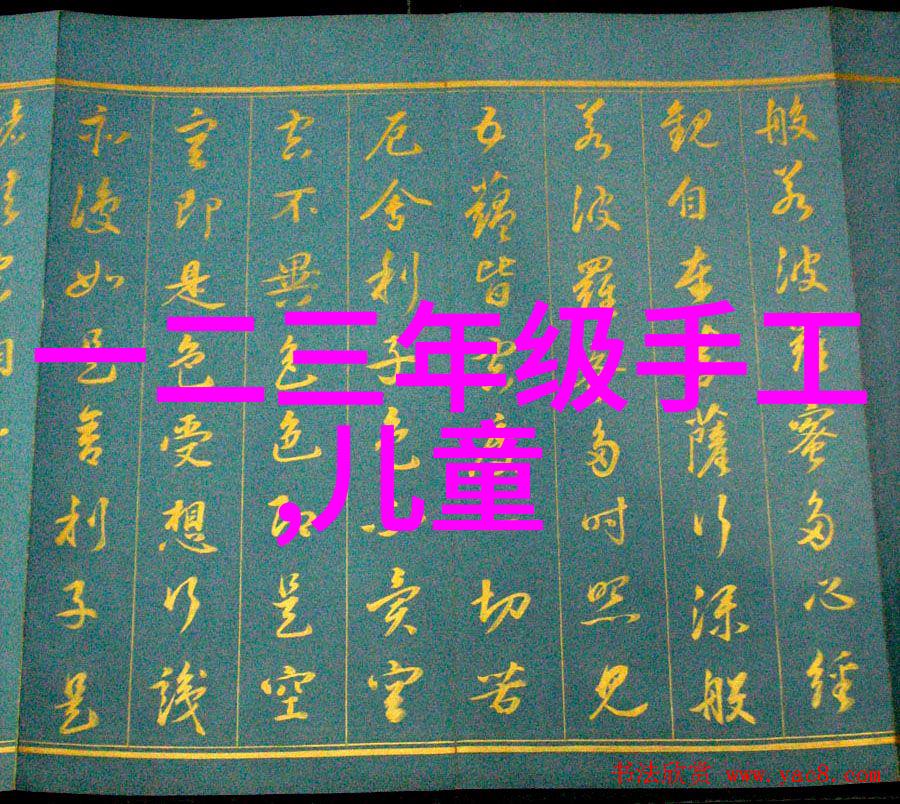 般若波羅蜜多心經
觀自在菩薩行深般
若波羅蜜多時照見
五蘊皆空度一切苦
厄舍利子色不異空
空不異色色即是空
空即是色受想行識
亦復如是舍利子是
一二三年级手工
,儿童
书法欣赏 www.yac8.com